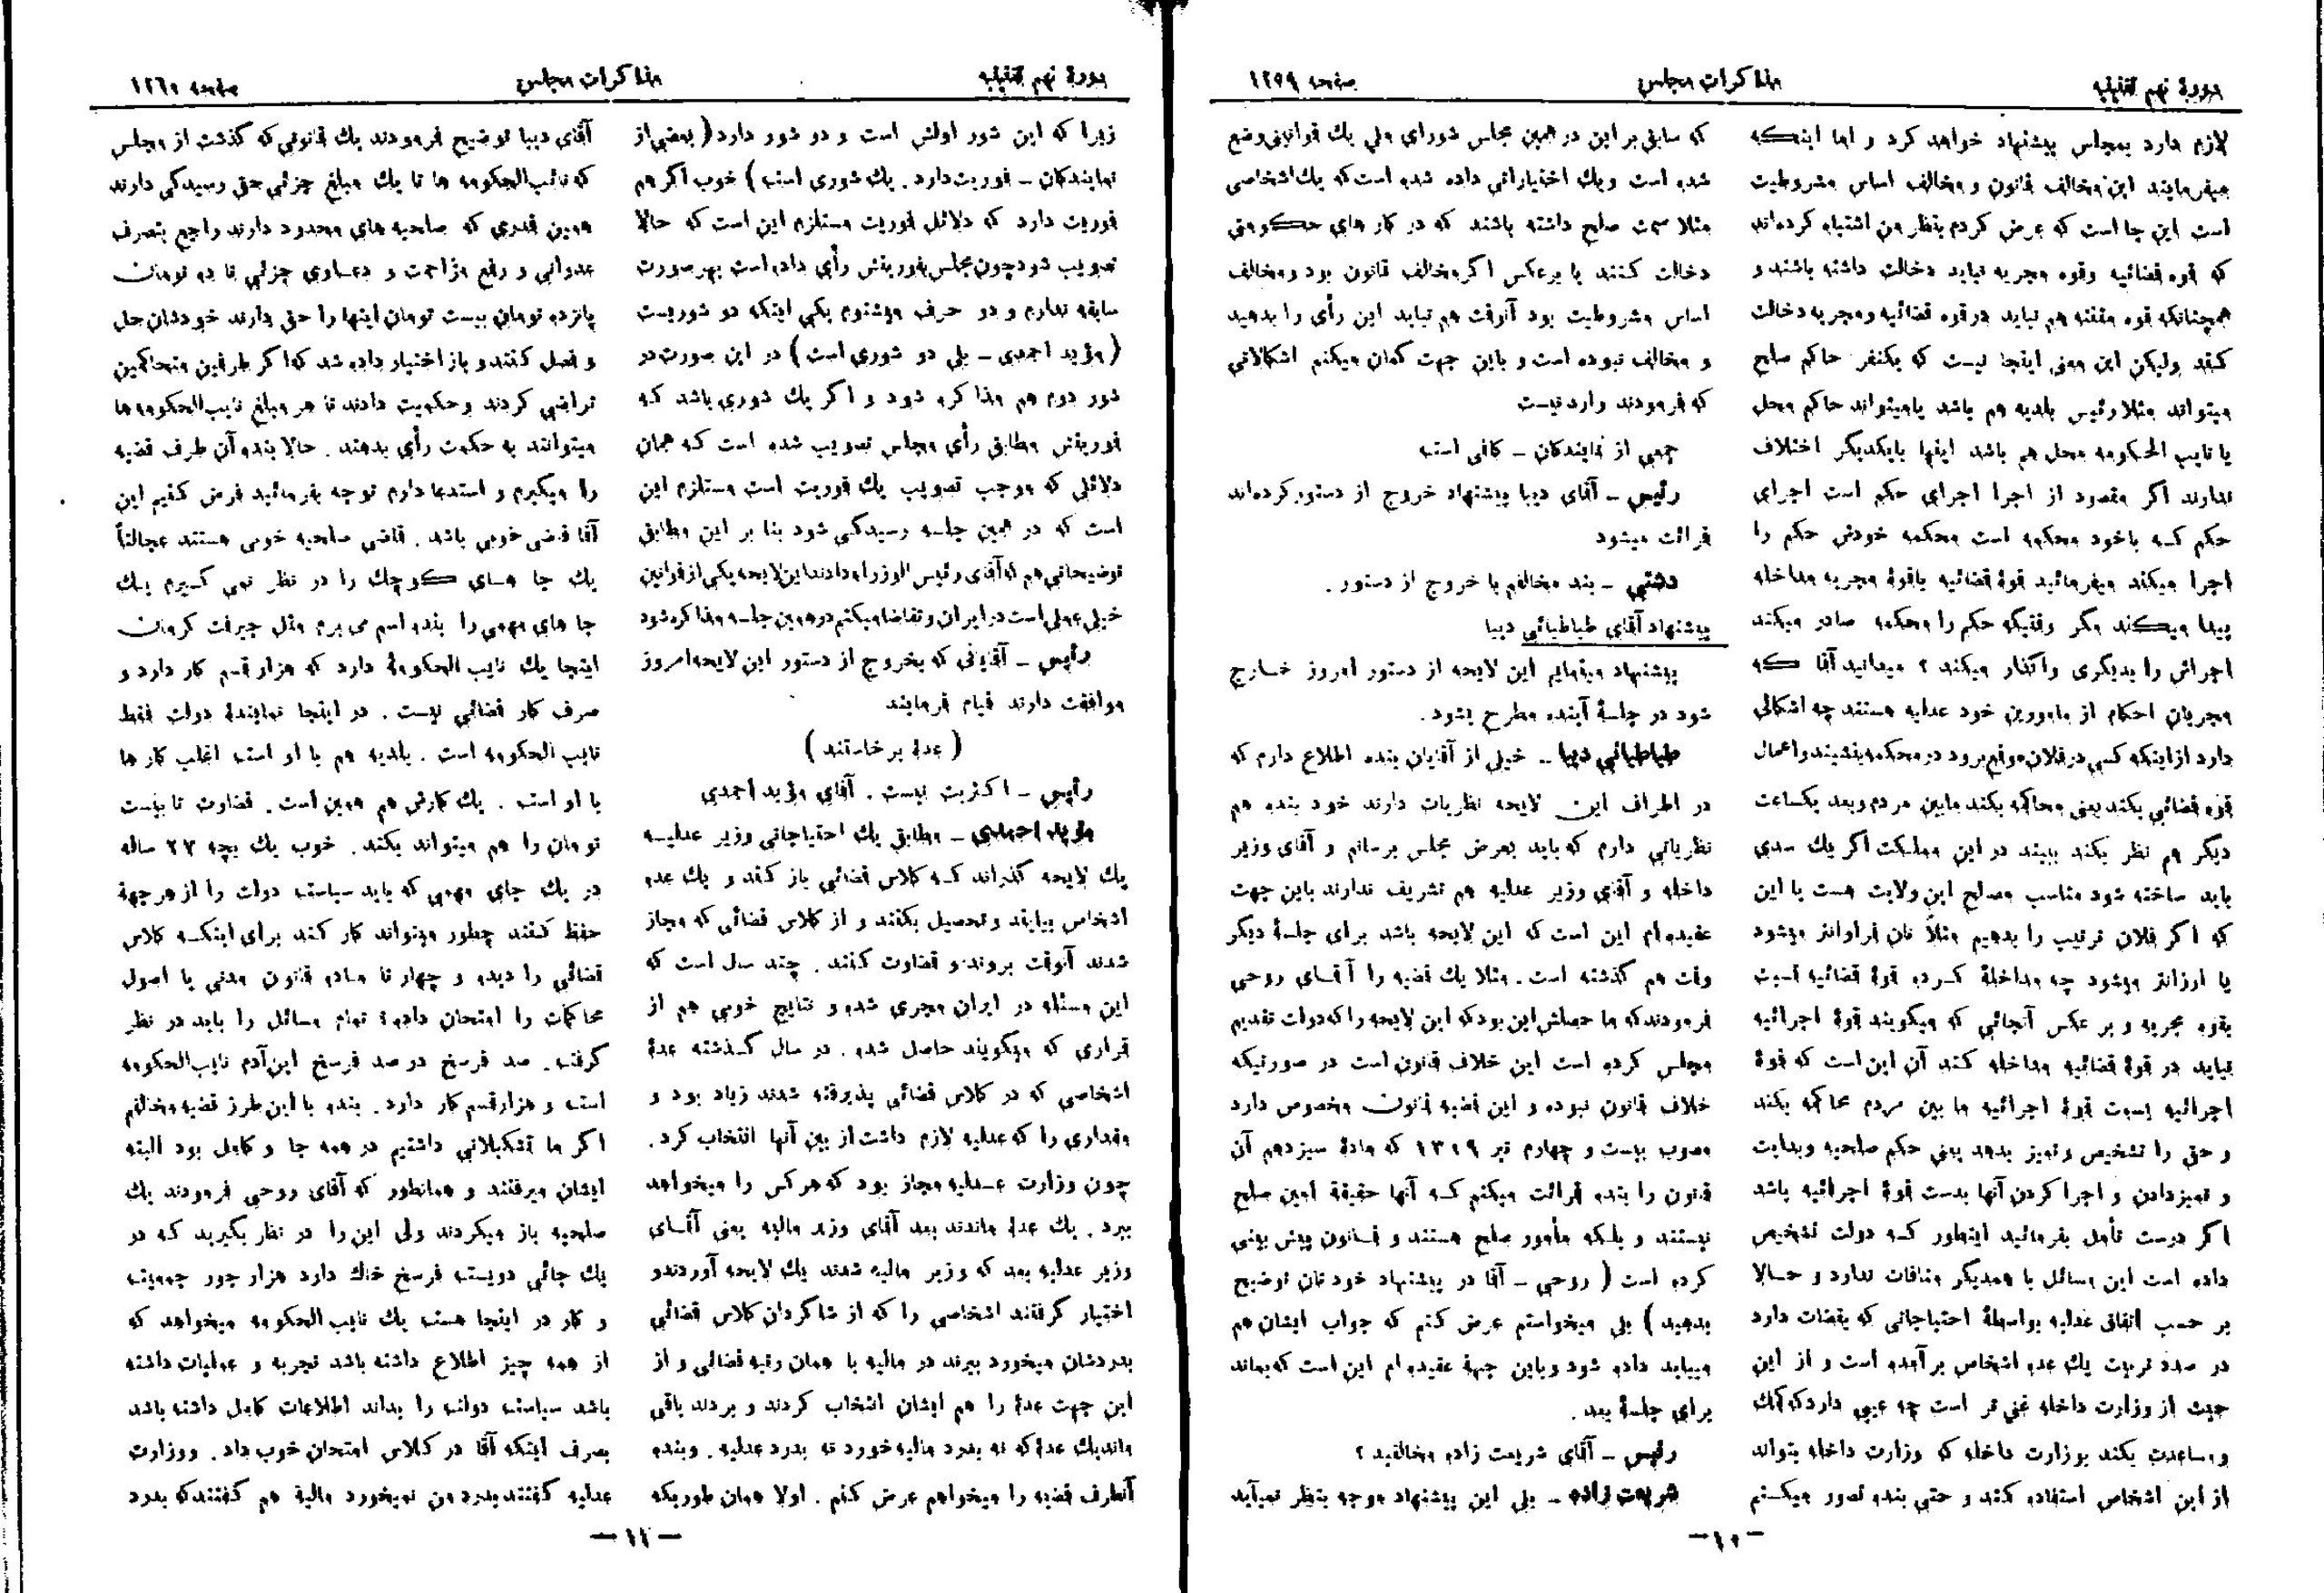 دورهٔ نهم تقنینیه
مذاکرات مجلس
صفحه ۱۲۵۹
لازم دارد بمجلس پیشنهاد خواهد کرد و اما اینکه
میفرمایند این مخالف قانون و مخالف اساس مشروطیت
است این جا است که عرض کردم بنظر من اشتباه کرده‌اند
که قوه قضائیه وقوه مجریه نباید دخالت داشته باشند و
همچنانکه قوه مقننه هم نباید در قوه قضائیه و مجریه دخالت
کند ولیکن این معنی اینجا نیست که یکنفر حاکم صلح
میتواند مثلا رئیس بلدیه هم باشد یا میتواند حاکم محل
یا نایب الحکومه محل هم باشد اینها بایکدیگر اختلاف
ندارند اگر مقصود از اجرا اجرای حکم است اجرای
حکم که باخود محکمه است محکمه خودش حکم را
اجرا میکند میفرمائید قوهٔ قضائیه باقوهٔ مجریه مداخله
پیدا میکند مگر وقتیکه حکم را محکمه صادر میکند
اجرائش را بدیگری واگذار میکند ؟ میدانید آقا که
مجریان احکام از مامورین خود عدلیه هستند چه اشکالی
دارد از اینکه کسی در فلان موقع برود در محکمه بنشیند و اعمال
قوه قضائی بکند یعنی محاکمه بکند مابین مردم و بعد یکساعت
دیگر هم نظر بکند ببیند در این مملکت اگر یك سدی
باید ساخته شود مناسب مصلح این ولایت هست یا این
که اگر فلان ترتیب را بدهیم مثلاً نان فراوانتر میشود
یا ارزانتر میشود چه مداخلهٔ کرده قوهٔ قضائیه نسبت
بقوه مجریه و بر عکس آنجائی که میگویند قوهٔ اجرائیه
نباید در قوهٔ قضائیه مداخله کند آن این است که قوهٔ
اجرائیه بسمت قوهٔ اجرائیه ما بین مردم محاکمه بکند
و حق را تشخیص و تمیز بدهد یعنی حکم صلحیه و بدایت
و تمیز دادن و اجرا کردن آنها بدست قوهٔ اجرائیه باشد
اگر درست تأمل بفرمائید اینطور که دولت تشخیص
داده است این مسائل با همدیگر منافات ندارد و حالا
بر حسب اتفاق عدلیه بواسطهٔ احتیاجاتی که بقضات دارد
در صدد تربیت یك عده اشخاص بر آمده است و از این
حیث از وزارت داخله غنی تر است چه عیبی دارد که کمك
و مساعدت بکند بوزارت داخله که وزارت داخله بتواند
از این اشخاص استفاده کند و حتی بنده تصور میکنم
که سابق بر این در همین مجلس شورای ملی یك قوانینی وضع
شده است و یك اختیاراتی داده شده است که یك اشخاصی
مثلا سمت صلح داشته باشند که در کار های حکومتی
دخالت کنند یا برعکس اگر مخالف قانون بود و مخالف
اساس مشروطیت بود آنوقت هم نباید این رأی را بدهید
و مخالف نبوده است و باین جهت گمان میکنم اشکالاتی
که فرمودند وارد نیست
جمعی از نمایندگان ـ کافی است
رئیس ـ آقای دیبا پیشنهاد خروج از دستور کرده‌اند
قرائت میشود
دشتی ـ بنده مخالفم با خروج از دستور .
پیشنهاد آقای طباطبائی دیبا
پیشنهاد مینمایم این لایحه از دستور امروز خارج
شود در جلسهٔ آینده مطرح بشود.
طباطبائی دیبا ـ خیلی از آقایان بنده اطلاع دارم که
در اطراف این لایحه نظریات دارند خود بنده هم
نظریاتی دارم که باید بعرض مجلس برسانم و آقای وزیر
داخله و آقای وزیر عدلیه هم تشریف ندارند باین جهت
عقیده‌ام این است که این لایحه باشد برای جلسهٔ دیگر
وقت هم گذشته است. مثلا یك قضیه را آقای روحی
فرمودند که ما حصلش این بود که این لایحه را که دولت تقدیم
مجلس کرده است این خلاف قانون است در صورتیکه
خلاف قانون نبوده و این قضیه قانون مخصوص دارد
مصوب بیست و چهارم تیر ۱۳۰۹ که مادهٔ سیزدهم آن
قانون را بنده قرائت میکنم که آنها حقیقة امین صلح
نیستند و بلکه مأمور صلح هستند و قانون پیش بینی
کرده است ( روحی ـ آقا در پیشنهاد خودتان توضیح
بدهید ) بلی میخواستم عرض کنم که جواب ایشان هم
میباید داده شود و باین جهة عقیده ام این است که بماند
برای جلسهٔ بعد.
رئیس ـ آقای شریعت زاده مخالفید ؟
شریعت زاده ـ بلی این پیشنهاد موجه بنظر نمیآید
ـ ۱۰ ـ
دورهٔ نهم تقنینیه
مذاکرات مجلس
صفحه ۱۲۶۰
زیرا که این شور اولش است و دو شور دارد ( بعضی از
نمایندگان ـ فوریت دارد. یك شوری است ) خوب اگر هم
فوریت دارد که دلائل فوریت مستلزم این است که حالا
تصویب شود چون مجلس بفوریتش رأی داده است بهر صورت
سابقه ندارم و دو حرف میشنوم یکی اینکه دو شوریست
( مؤید احمدی ـ بلی دو شوری است ) در این صورت در
شور دوم هم مذاکره شود و اگر یك شوری باشد که
فوریتش مطابق رأی مجلس تصویب شده است که همان
دلائلی که موجب تصویب یك فوریت است مستلزم این
است که در همین جلسه رسیدگی شود بنا بر این مطابق
توضیحاتی هم که آقای رئیس الوزراء دادند این لایحه یکی از قوانین
خیلی عملی است در ایران و تقاضا میکنم در همین جلسه مذاکره شود
رئیس ـ آقایانی که بخروج از دستور این لایحه امروز
موافقت دارند قیام فرمایند
( عدهٔ برخاستند )
رئیس ـ اکثریت نیست . آقای مؤید احمدی
مؤید احمدی ـ مطابق یك احتیاجاتی وزیر عدلیه
یك لایحه گذراند که کلاس قضائی باز کند و یك عده
اشخاص بیایند و تحصیل بکنند و از کلاس قضائی که مجاز
شدند آنوقت بروند و قضاوت کنند . چند سال است که
این مسئله در ایران مجری شده و نتایج خوبی هم از
قراری که میگویند حاصل شده . در سال گذشته عدهٔ
اشخاصی که در کلاس قضائی پذیرفته شدند زیاد بود و
مقداری را که عدلیه لازم داشت از بین آنها انتخاب کرد.
چون وزارت عدلیه مجاز بود که هر کس را میخواهد
ببرد . یك عدهٔ ماندند بعد آقای وزیر مالیه یعنی آقای
وزیر عدلیه بعد که وزیر مالیه شدند یك لایحه آوردند و
اختیار گرفتند اشخاصی را که از شاگردان کلاس قضائی
بدردشان میخورد ببرند در مالیه با همان رتبه قضائی و از
این جهت عدهٔ را هم ایشان انتخاب کردند و بردند باقی
ماند یك عدهٔ که نه بدرد مالیه خورد نه بدرد عدلیه . و بنده
آنطرف قضیه را میخواهم عرض کنم . اولا همان طوریکه
آقای دیبا توضیح فرمودند یك قانونی که گذشت از مجلس
که نائب‌الحکومه ها تا یك مبلغ جزئی حق رسیدگی دارند
همین قدری که صلحیه های محدود دارند راجع بتصرف
عدوانی و رفع مزاحمت و دعاوی جزئی تا ده تومان
پانزده تومان بیست تومان اینها را حق دارند خودشان حل
و فصل کنند و باز اختیار داده شد که اگر طرفین متحاکمین
تراضی کردند و حکمیت دادند تا هر مبلغ نایب‌الحکومه ها
میتوانند به حکمیت رأی بدهند . حالا بنده آن طرف قضیه
را میگیرم و استدعا دارم توجه بفرمائید فرض کنیم این
آقا قاضی خوبی باشد . قاضی صلحیه خوبی هستند عجالتاً
یك جا های کوچك را در نظر نمی گیرم یك
جا های مهمی را بنده اسم می برم مثل جیرفت کرمان
اینجا یك نایب الحکومهٔ دارد که هزار قسم کار دارد و
صرف کار قضائی نیست . در اینجا نمایندهٔ دولت فقط
نایب الحکومه است . بلدیه هم با او است اغلب کار ها
با او است . یك کارش هم همین است . قضاوت تا بیست
تومان را هم میتواند بکند . خوب یك بچه ۲۲ ساله
در یك جای مهمی که باید سیاست دولت را از هر جهة
حفظ کنند چطور میتواند کار کند برای اینکه کلاس
قضائی را دیده و چهار تا ماده قانون مدنی یا اصول
محاکمات را امتحان داده؟ تمام مسائل را باید در نظر
گرفت . صد فرسخ در صد فرسخ این آدم نایب‌الحکومه
است و هزار قسم کار دارد . بنده با این طرز قضیه مخالفم
اگر ما تشکیلاتی داشتیم در همه جا و کامل بود البته
ایشان میرفتند و همانطور که آقای روحی فرمودند یك
صلحیه باز میکردند ولی این را در نظر بگیرید که در
یك جائی دویست فرسخ خاك دارد هزار جور جمعیت
و کار در اینجا هست یك نایب الحکومه میخواهد که
از همه چیز اطلاع داشته باشد تجربه و عملیات داشته
باشد سیاست دولت را بداند اطلاعات کامل داشته باشد
بصرف اینکه آقا در کلاس امتحان خوب داد . و وزارت
عدلیه گفتند بدرد من نمیخورد مالیه هم گفتند که بدرد
ـ ۱۱ ـ